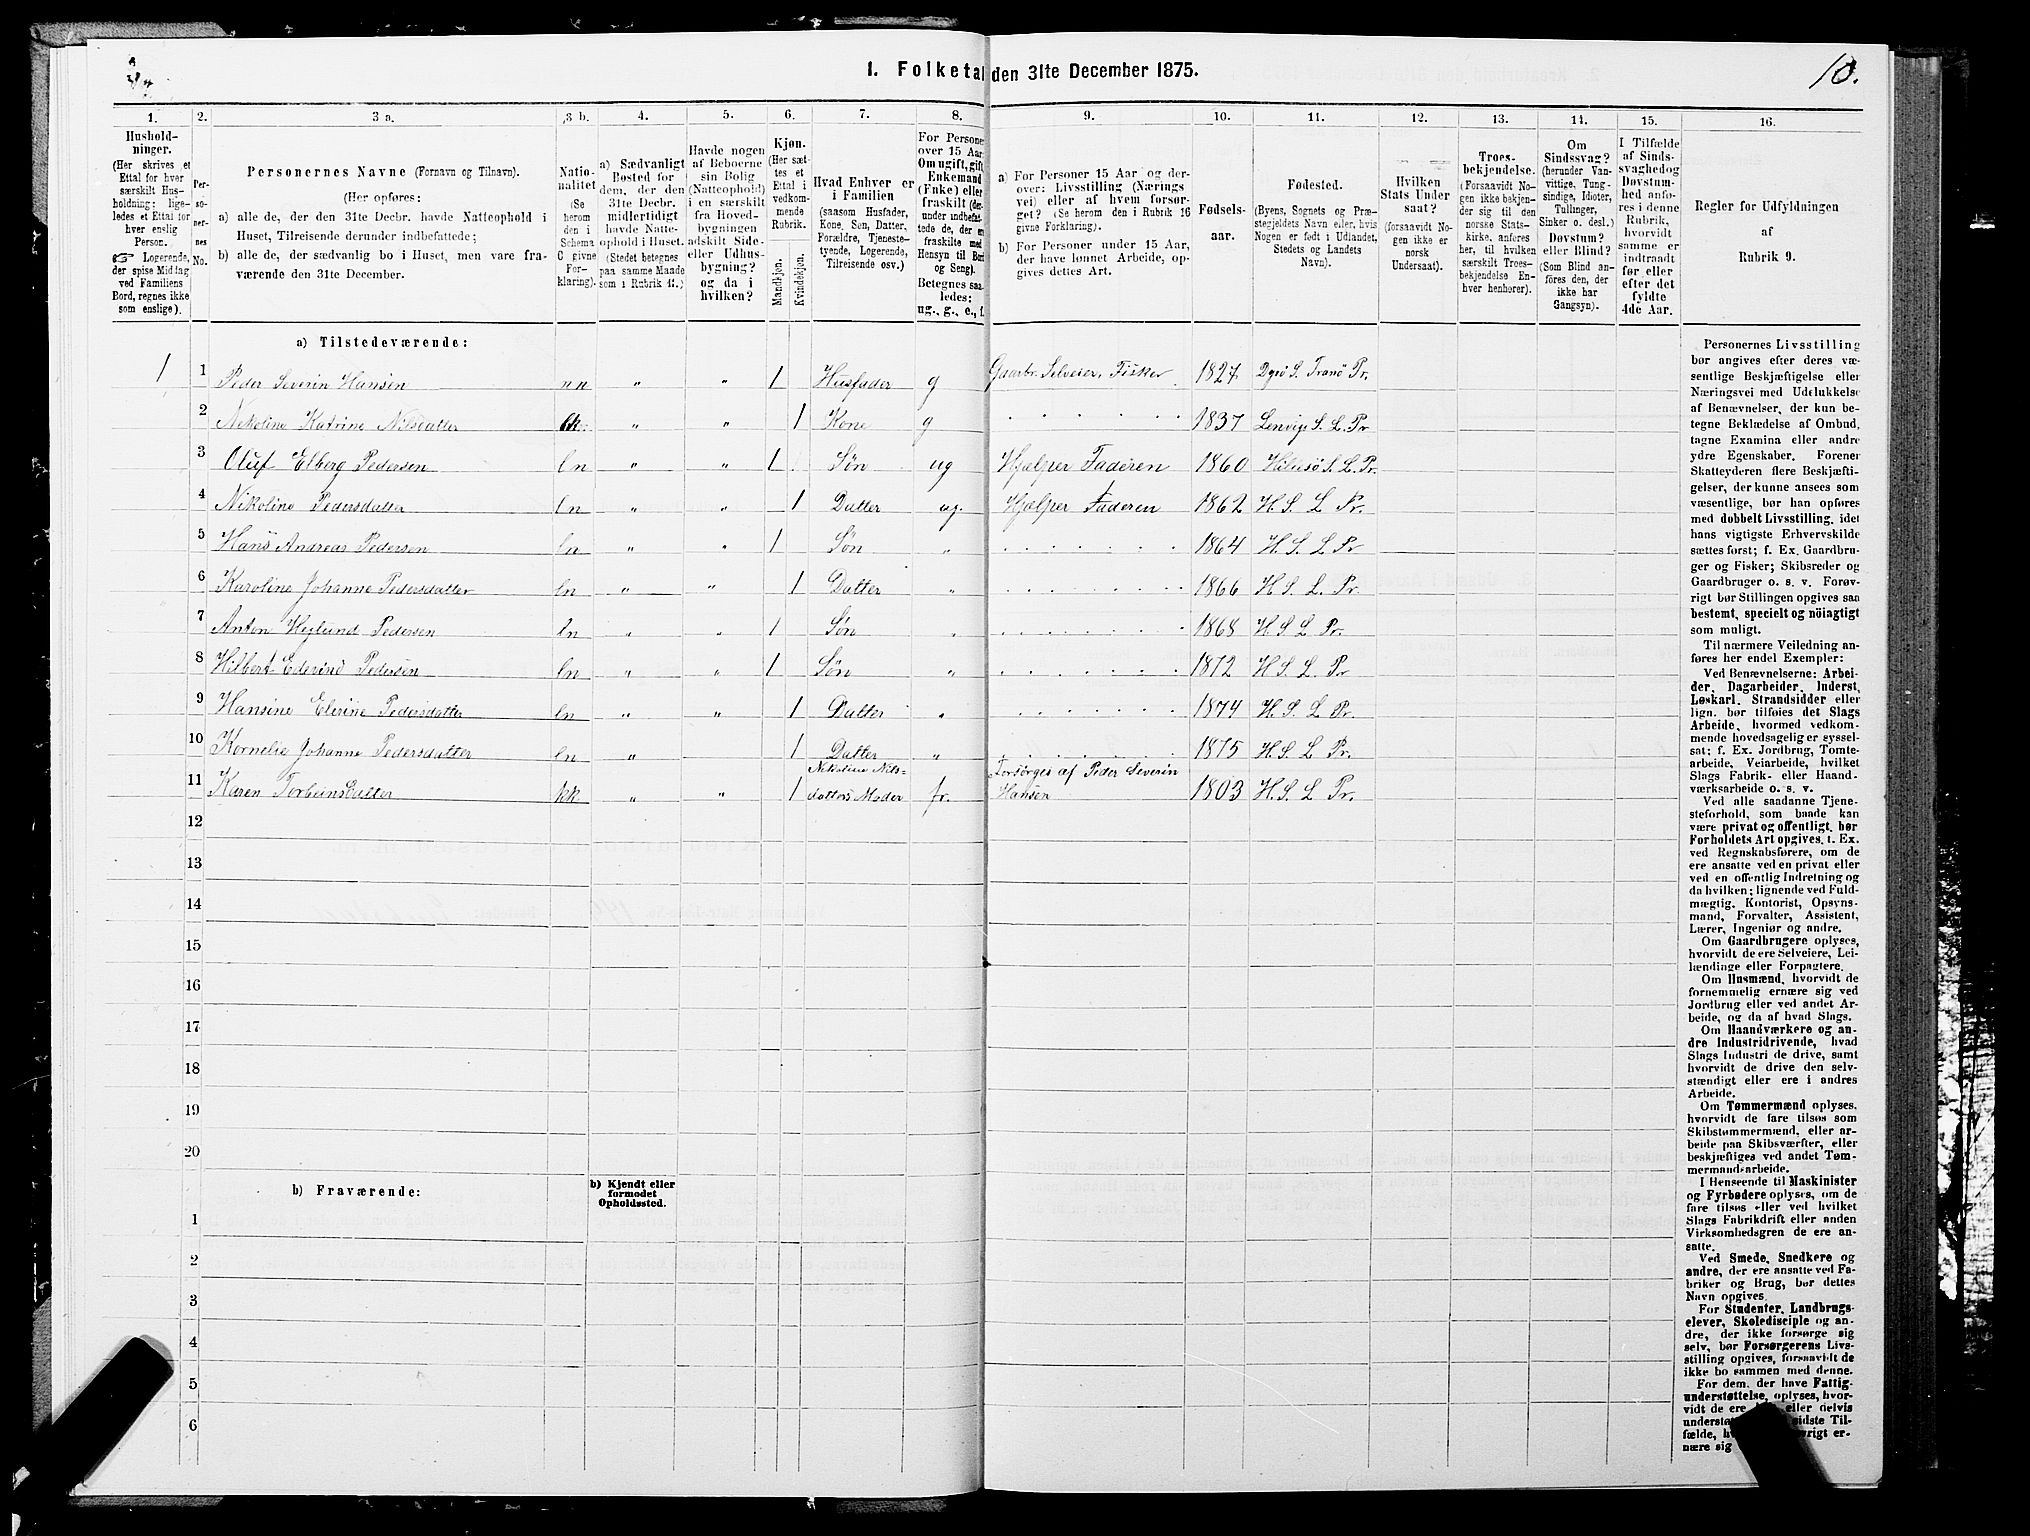 1. Folketal den 31te December 1875.
10.
1.
2.
3 a.
3 b.
4.
5.
6.
7.
8.
9.
10.
11.
12.
13.
14.
15.
16.
Hushold-
ninger.
(Her skrives et
Ettal for hver
særskilt Hus-
holdning; lige-
ledes et Ettal for
hver enslig
Person.
☞ Logerende,
der spise Middag
ved Familiens
Bord, regnes ikke
som enslige).
Per-
so-
ner-
nes
No.
Personernes Navne (Fornavn og Tilnavn).
(Her opføres:
a) alle de, der den 31te Decbr. havde Natteophold i
Huset, Tilreisende derunder indbefattede;
b) alle de, der sædvanlig bo i Huset, men vare fra-
værende den 31te December.
Natio-
nalitet
(Se
herom
den i
Schema
C givne
For-
klaring).
a) Sædvanligt
Bosted for
dem, der den
31te Decbr.
midlertidigt
havde Natte-
ophold i Huset.
(Stedet betegnes
paa samme Maade
som i Rubrik 11.)
Havde nogen
af Beboerne
sin Bolig
(Natteophold)
i en særskilt
fra Hoved-
bygningen
adskilt Side-
eller Udhus-
bygning?
og da i
hvilken?
Kjøn.
(Her sæt-
tes et
Ettal i
vedkom-
mende
Rubrik.
Mandkjøn.
Kvindekjøn.
Hvad Enhver er
i Familien
(saasom Husfader,
Kone, Søn, Datter,
Forældre, Tjeneste-
tyende, Logerende,
Tilreisende osv.)
For Persone
over 15 Aar
Om ugift, gift,
Enkemand
(Enke) eller
fraskilt (der-
under indbefat-
tede de, der er
fraskilte med
Hensyn til Bord
og Seng).
Betegnes saa-
ledes:
ug., g., e., f.
a) For Personer 15 Aar og der-
over: Livsstilling (Nærings
vei) eller af hvem forsør-
get? (Se herom den i Rubrik 16
givne Forklaring).
b) For Personer under 15 Aar,
der have lønnet Arbeide, op-
gives dettes Art.
Fødsels-
aar.
Fødested.
(Byens, Sognets og Præ-
stegjeldets Navn eller, hvis
Nogen er født i Udlandet,
Stedets og Landets
Navn).
Hvilken
Stats Under
saat?
(forsaavidt No-
gen ikke er
norsk
Undersaat).
Troes-
bekjendelse.
(Forsaavidt No-
gen ikke bekjen-
der sig til den
norske Stats-
kirke, anføres
her, til hvilken
særskilt Troes-
bekjendelse En-
hver henhører).
Om
Sindssvag?
(herunder Van-
vittige, Tung-
sindige, Idioter,
Tullinger,
Sinker o. desl.)
Døvstum?
eller Blind?
(Som Blind an-
føres den, der
ikke har
Gangsyn).
I Tilfælde
af Sinds-
svaghed og
Døvstum-
hed anfø-
res i denne
Rubrik,
hvorvidt
samme er
indtraadt
før eller
efter det
fyldte
4de Aar.
Regler for Udfyldningen
af
Rubrik 9.
a) Tilstedeværende:
1 1 Peder Severin Hansen nn " " 1 Husfader g Gaardbr. Selveier, Fisker 1827 Dyrö S. Tranö Pr.
2 Nekoline Katrine Nilsdatter " " 1 Kone g 1837 Lenvigs S. L. Pr
3 Oluf Elberg Pedersen ln " " 1 Søn ug Hjælper Faderen 1860 S. L. Pr.
4 Nikoline Pedersdatter ln " " 1 Datter ug. Hjælper Faderen 1862 H. S. L Pr.
5 Hans Andreas Pedersen ln " " 1 Søn " 1864 H. S. L Pr
6 Karoline Johanne Pedersdatter ln " " 1 Datter " 1866 H S. L. Pr.
7 Anton Heglund Pedersen ln " " 1 Søn " 1868 H. S L Pr.
8 Hilbert Pedersen ln " " 1 Søn " 1872 H S. L. Pr
9 Hansine Elerine Pedersdatter ln " " 1 Datter " 1874 H. S. L Pr.
10 Kornelie Johanne Pedersdatter ln " 1 Datter " 1875 H. S. L. Pr.
11 Karen Torbeinsdatter kk. " " 1 Nikoline Nils-
datters Moder fr. Forsörges af Peder Severin
Hansen 1803 H. S. L Pr.
12
13
14
15
16
17
18
19
20
b) Fraværende:
b) Kjendt eller
formodet
Opholdssted.
1
2
3
4
5
6
Personernes Livsstilling
bør angives efter deres væ-
sentlige Beskjæftigelse eller
Næringsvei med Udelukkelse
af Benævnelser, der kun be-
tegne Beklædelse af Ombud,
tagne Examina eller andre
ydre Egenskaber. Forener
Skatteyderen flere Beskjæfti-
gelser, der kunne ansees som
væsentlige, bør han opføres
med dobbelt Livsstilling, idet
hans vigtigste Erhvervskilde
sættes først; f. Ex. Gaardbru-
ger og Fisker; Skibsreder og
Gaardbruger o. s. v. Forøv-
rigt bør Stillingen opgives saa
bestemt, specielt og nöiagtigt
som muligt.
Til nærmere Veiledning an-
føres her endel Exempler:
Ved Benævnelserne: Arbei-
der, Dagarbeider, Inderst,
Løskarl, Strandsidder eller
lign. bør tilføies det Slags
Arbeide, hvormed vedkom-
mende hovedsagelig er syssel-
sat; f. Ex. Jordbrug, Tomte-
arbeide, Veiarbeide, hvilket
Slags Fabrik- eller Haand-
værksarbeide o. s. v.
Ved alle saadanne Tjene-
steforhold, som baade kan
være privat og offentligt, bør
Forholdets Art opgives, f. Ex.
ved Regnskabsførere, om de
ere ansatte ved en privat eller
ved en offentlig Indretning og
da hvilken; lignende ved Fuld-
mægtig, Kontorist, Opsyns-
mand, Forvalter, Assistent,
Lærer, Ingeniør og andre.
Om Gaardbrugere oplyses,
hvorvidt de ere Selveiere, Lei-
lændinge eller Forpagtere.
Om Husmænd, hvorvidt de
fornemmelig ernære sig ved
Jordbrug eller ved andet Ar-
beide, og da af hvad Slags.
Om Haandværkere og an-
dre Industridrivende, hvad
Slags Industri de drive, samt
hvorvidt de drive den selv-
stændigt eller ere i andres
Arbeide.
Om Tømmermænd oplyses,
hvorvidt de fare tilsøs som
Skibstømmermænd, eller ar-
beide paa Skibsværfter, eller
beskjæftiges ved andet Tøm-
mermandsarbeide.
I Henseende til Maskinister
og Fyrbødere oplyses, om de
fare tilsøs eller ved hvilket
Slags Fabrikdrift eller anden
Virksomhedsgren de ere an-
satte.
Ved Smede, Snedkere og
andre, der ere ansatte ved Fa-
briker og Brug, bør dettes
Navn opgives.
For Studenter, Landbrugs-
elever, Skoledisciple og an-
dre, der ikke forsørge sig
selv, bør Forsørgerens Livs-
stilling opgives, forsaavidt de
ikke bo sammen med denne.
For dem, der have Fattig-
understøttelse, oplyses, hvor-
vidt de ere eller delvis
understø sidste Til-
fælde, rigt er-
nære sig